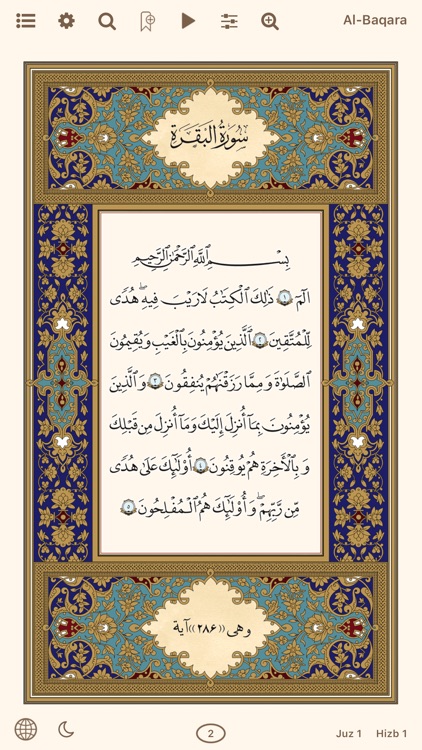 Al-Baqara
سُورَةُ الْبَقَرَةِ
بِسْمِ ٱللَّهِ ٱلرَّحْمَٰنِ ٱلرَّحِيمِ
الٓمٓ ١ ذَٰلِكَ ٱلْكِتَٰبُ لَا رَيْبَ ۛ فِيهِ ۛ هُدًى
لِّلْمُتَّقِينَ ٢ ٱلَّذِينَ يُؤْمِنُونَ بِٱلْغَيْبِ وَيُقِيمُونَ
ٱلصَّلَوٰةَ وَمِمَّا رَزَقْنَٰهُمْ يُنفِقُونَ ٣ وَٱلَّذِينَ
يُؤْمِنُونَ بِمَآ أُنزِلَ إِلَيْكَ وَمَآ أُنزِلَ مِن قَبْلِكَ
وَبِٱلْأَخِرَةِ هُمْ يُوقِنُونَ ٤ أُو۟لَٰٓئِكَ عَلَىٰ هُدًى
مِّن رَّبِّهِمْ ۖ وَأُو۟لَٰٓئِكَ هُمُ ٱلْمُفْلِحُونَ ٥
وهى ((٢٨٦)) آية
2
Juz 1 Hizb 1